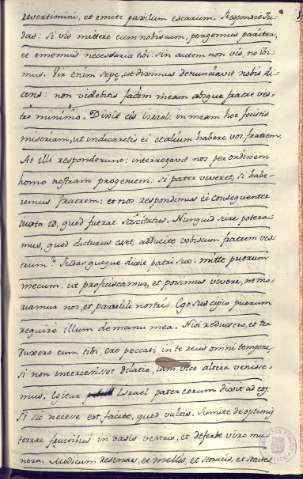 revertimini, et emite pauxilum escarum. Respondit Ju-
das: Si vis mittere eum nobiscum, pergemus pariter,
et ememus necessaria tibi. Sin autem non vis, no ibi-
mus. Vir enim sepe, ut diximus denunciavit nobis di-
cens: non videbitis faciem meam absque fratre ves-
tro minimo. Dixit eis Israel: in meam hoc fecistis
miseriam, ut indicaretis ei et alium habere vos fratrem.
At illi responderunt: interrogavit nos per ordinem
homo nostram progeniem. Si pater viveret, si habe-
remus fratrem: et nos respondimus ei consequenter
iuxta id, quod fuerat sciscitatus. Nunquid scire potera-
mus, quod dicturus esset, adducite vobiscum fratrem ves-
trum? Judas quoque dixit patri suo: mitte puerum
mecum, ut proficiscamur, et possimus vivere, ne mo-
riamur nos, et parvuli nostri. Ego suscipio puerum
require illum de manu mea. Nisi reduxero, et tra
duxero eum tibi ero peccati in te reus omni tempore,
si non intercessisset dilatio, iam vice altera venisse-
mus. Igitur Israel pater eorum dixit ad eos:
Si sic necesse est facite, quod vultis. Sumite de optimis
terrae fructibus in vasis vestris, et deferte viro mu-
nera. Modicum resinae, et mellis, et storacis, et stactes